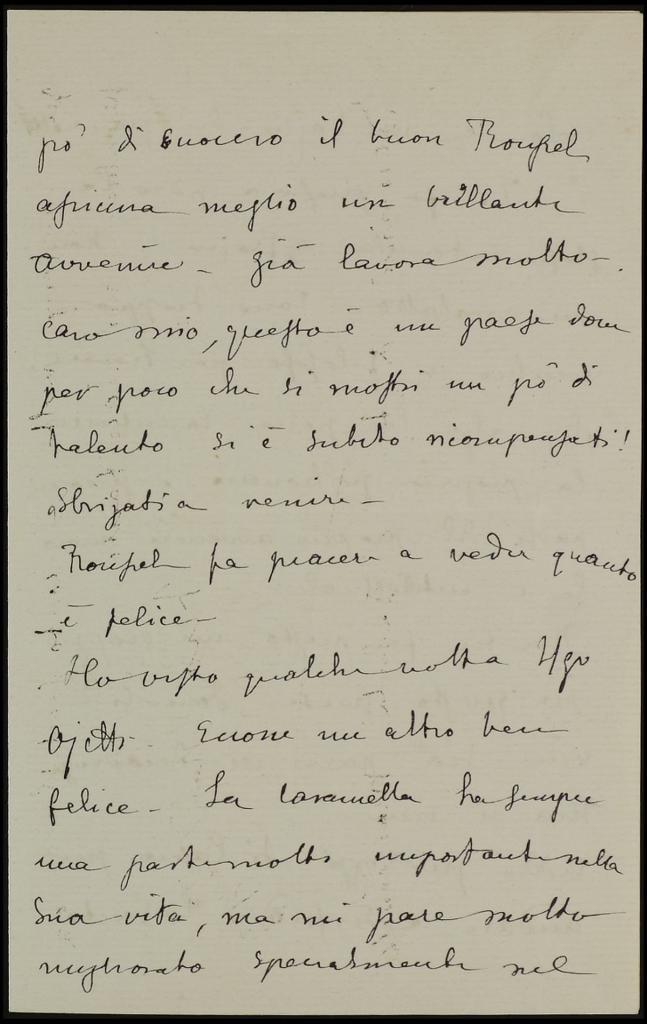 pò di suocero il buon Troupel
assicura meglio un brillante
avvenire – già lavora molto –
caro mio, questo è un paese dove
per poco che si mostri un pò di
talento si è subito ricompensati!
Sbrigati a venire –
Troupel fa piacere a veder quanto
è felice –
Ho visto qualche volta Ugo
Ojetti. Eccone un altro ben
felice – La caramella ha sempre
una parte molto importante nella
Sua vita, ma mi pare molto
migliorato specialmente nel